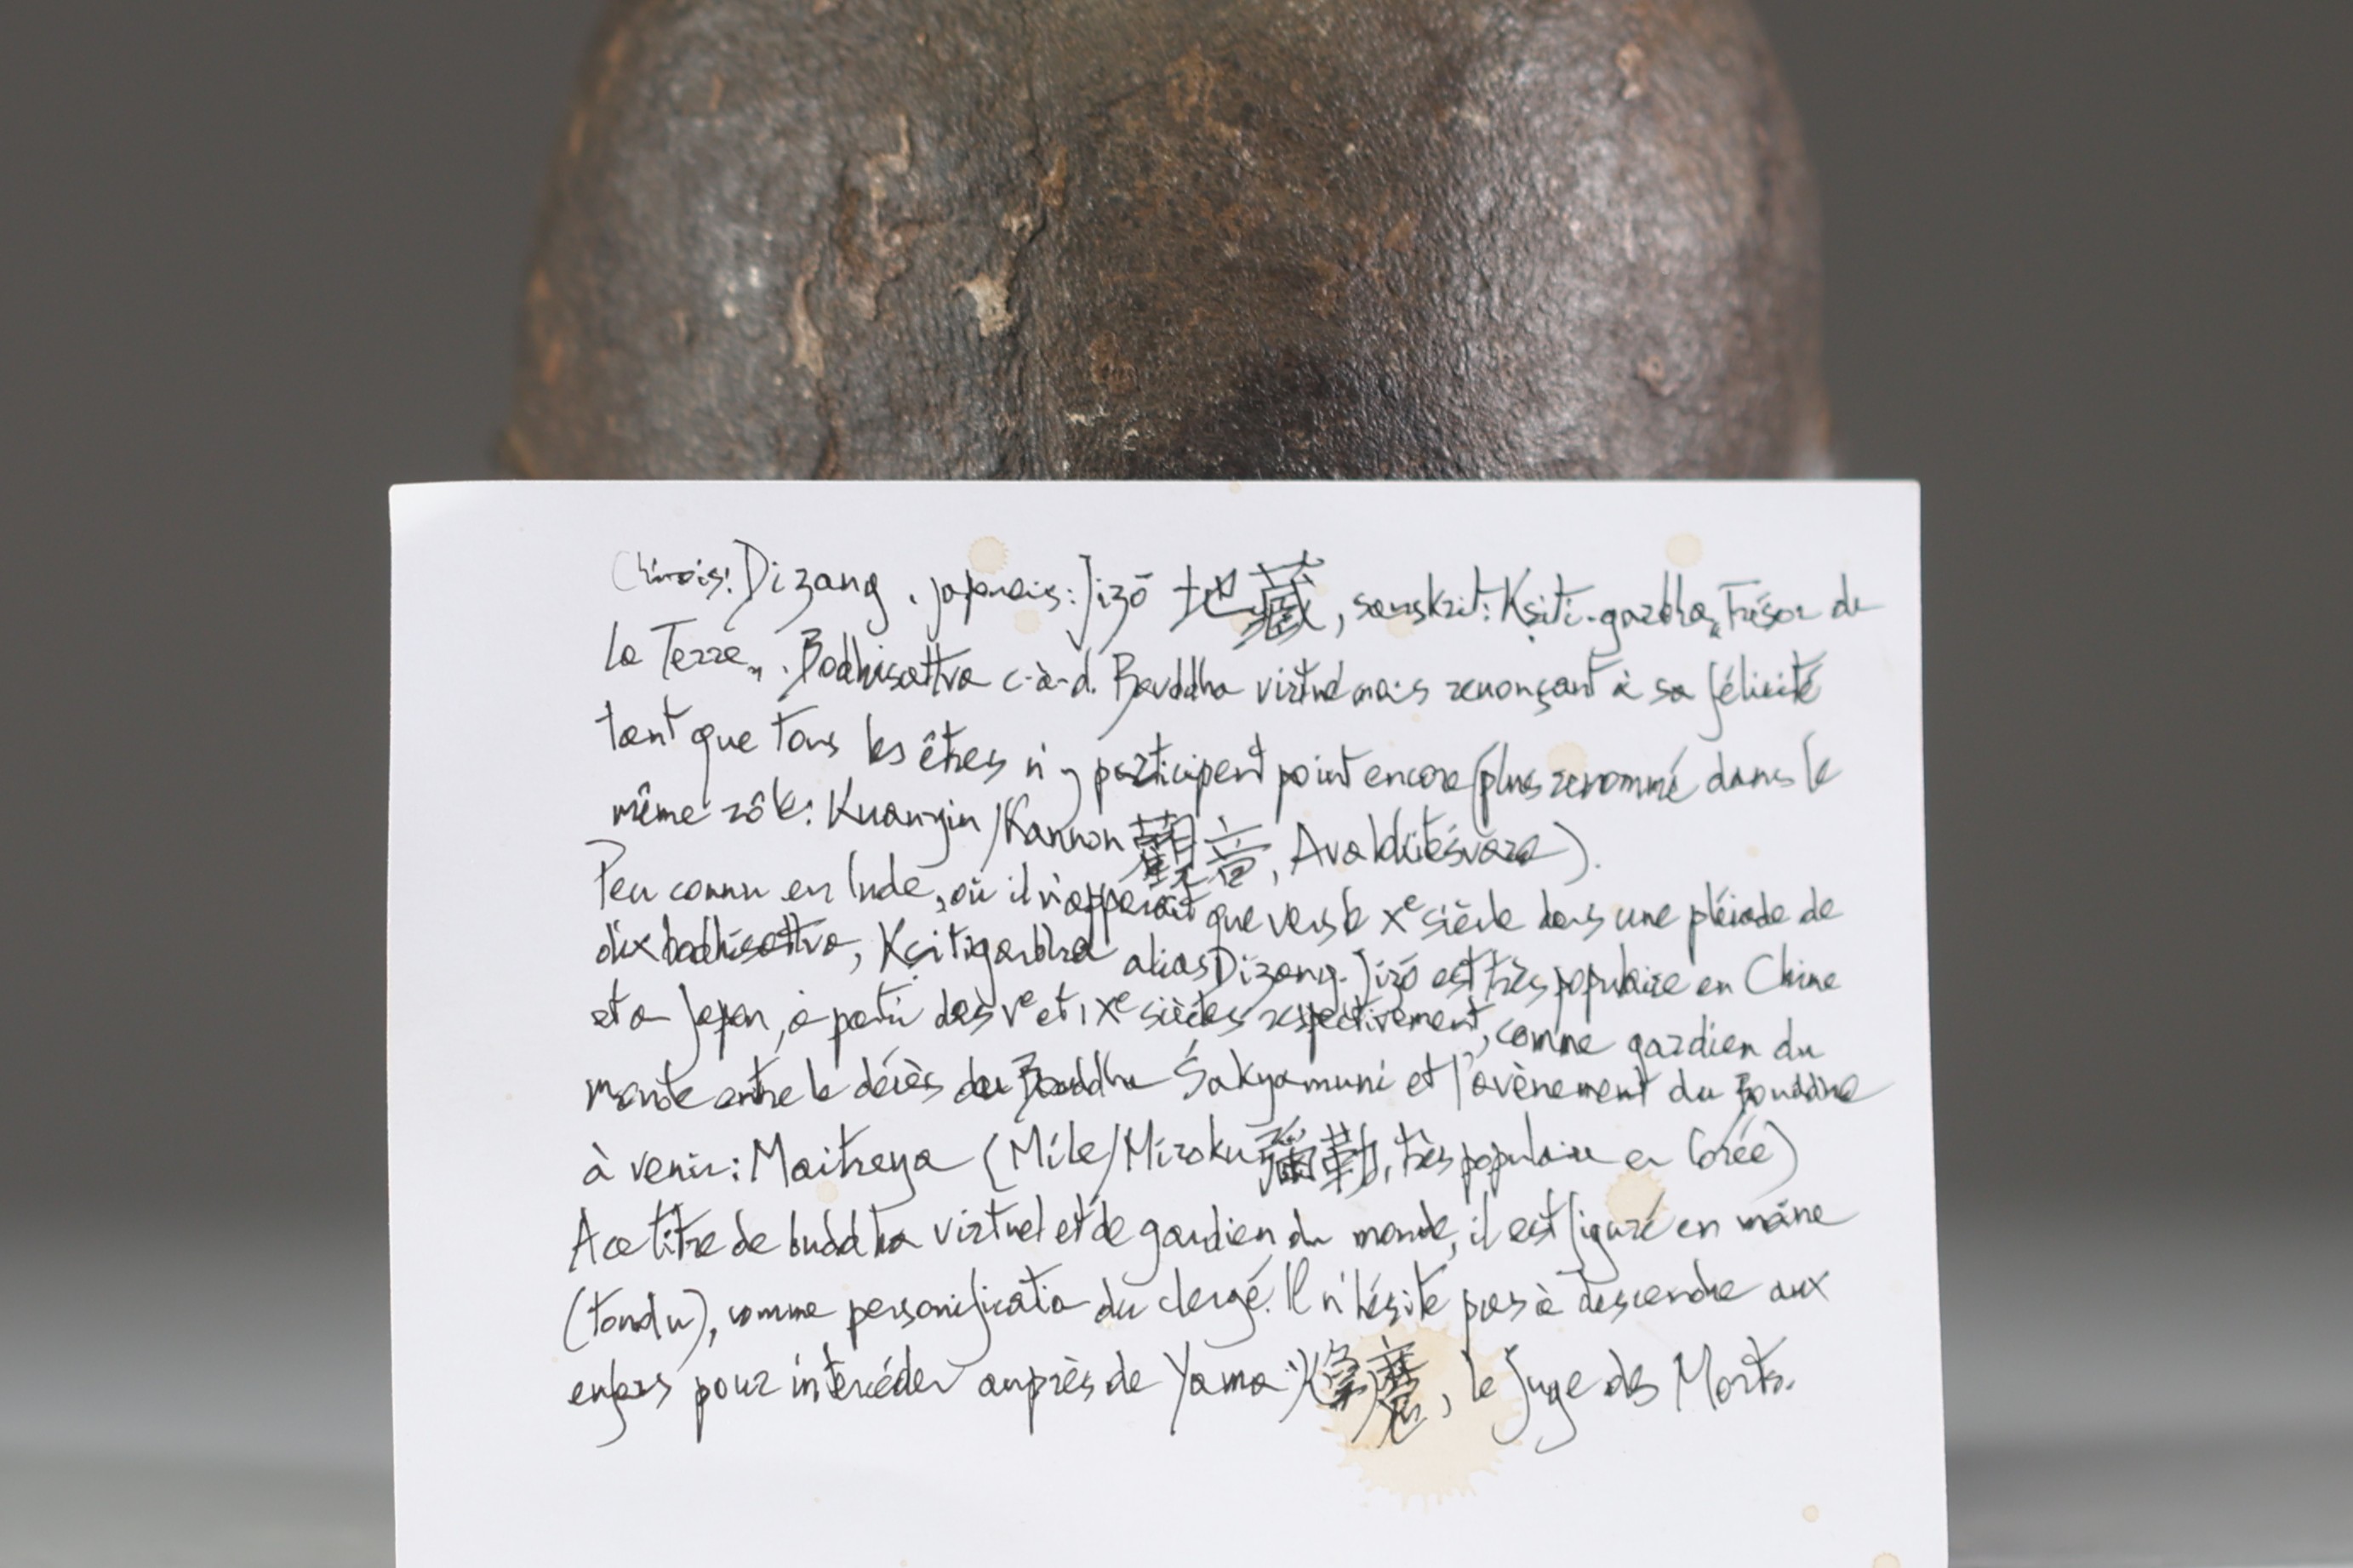 Chinois: Dizang, japonais: Jizō 地藏, sanskrit: Kṣiti-garbha „Trésor de
la Terre„. Bodhisattva c-à-d. Bouddha virtuel mais renonçant à sa félicité
tant que tous les êtres n'y participent point encore (plus renommé dans le
même rôle: Kuanyin/Kannon 觀音, Avalokiteśvara).
Peu connu en Inde, où il n'apparaît que vers le Xe siècle dans une pléiade de
dix bodhisattva, Kṣitigarbha alias Dizang-Jizō est très populaire en Chine
et au Japon, à partir des Ve et IXe siècles respectivement, comme gardien du
monde entre le décès du Bouddha Śakyamuni et l'avènement du Bouddha
à venir: Maitreya (Míle/Miroku 彌勒, très populaire en Corée)
A ce titre de buddha virtuel et de gardien du monde, il est figuré en moine
(tondu), comme personification du clergé. Il n'hésite pas à descendre aux
enfers pour intercéder auprès de Yama 磨, le Juge des Morts.